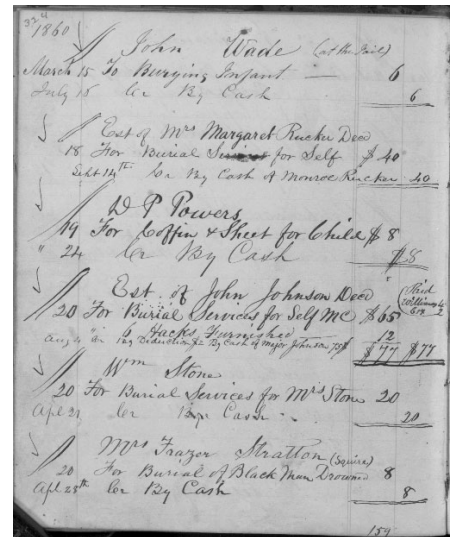 324
1860
John Wade (at the Jail)
March 15 To Burying Infant — 6
July 18 Cr By Cash 6
Est of Mrs Margaret Rucker Decd
18 For Burial for Self $ 40
Sept 14th Cr By Cash of Monroe Rucker 40
D P Powers
19 For Coffin & Sheet for Child $ 8
" 24 Cr By Cash $8
Est of John Johnson Decd
20 For Burial Services for Self Mc $ 65
Paid
6 Hacks Furnished 12
Aug By Cash of Major Johnson 75$ $77 $77
Wm Stone
20 For Burial Services for Mrs Stone 20
Apl 21 Cr By Cash 20
Mrs Frazer Stratton (Squire)
20 For Burial of Black Man Drowned 8
Apl 28th Cr By Cash 8
159